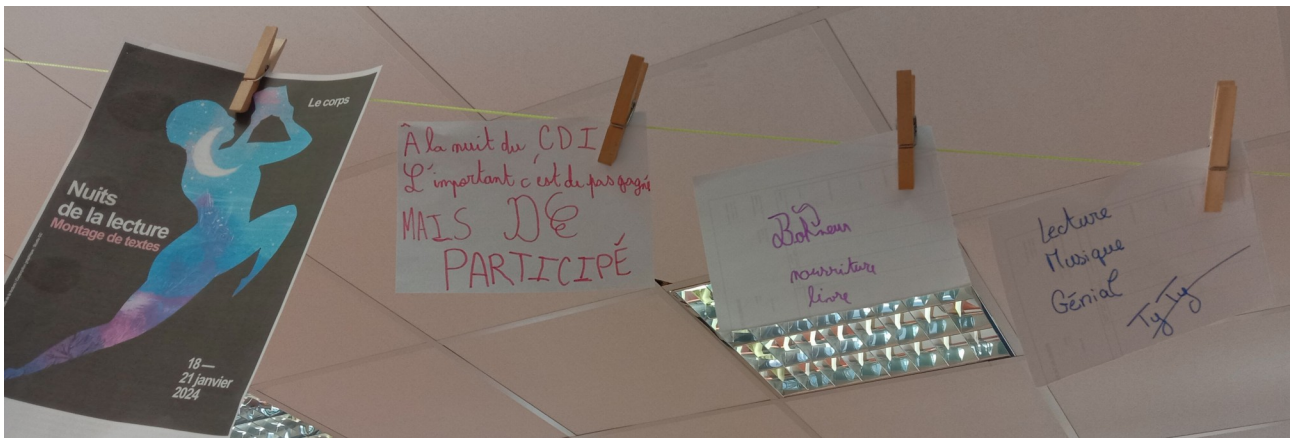 Le corps
Nuits
de la lecture
Montage de textes
18 —
21 janvier
2024
À la nuit du CDI
L'important c'est de pas gagné
MAIS DE
PARTICIPÉ
Bonheur
nourriture
livre
Lecture
Musique
Génial
TyTy